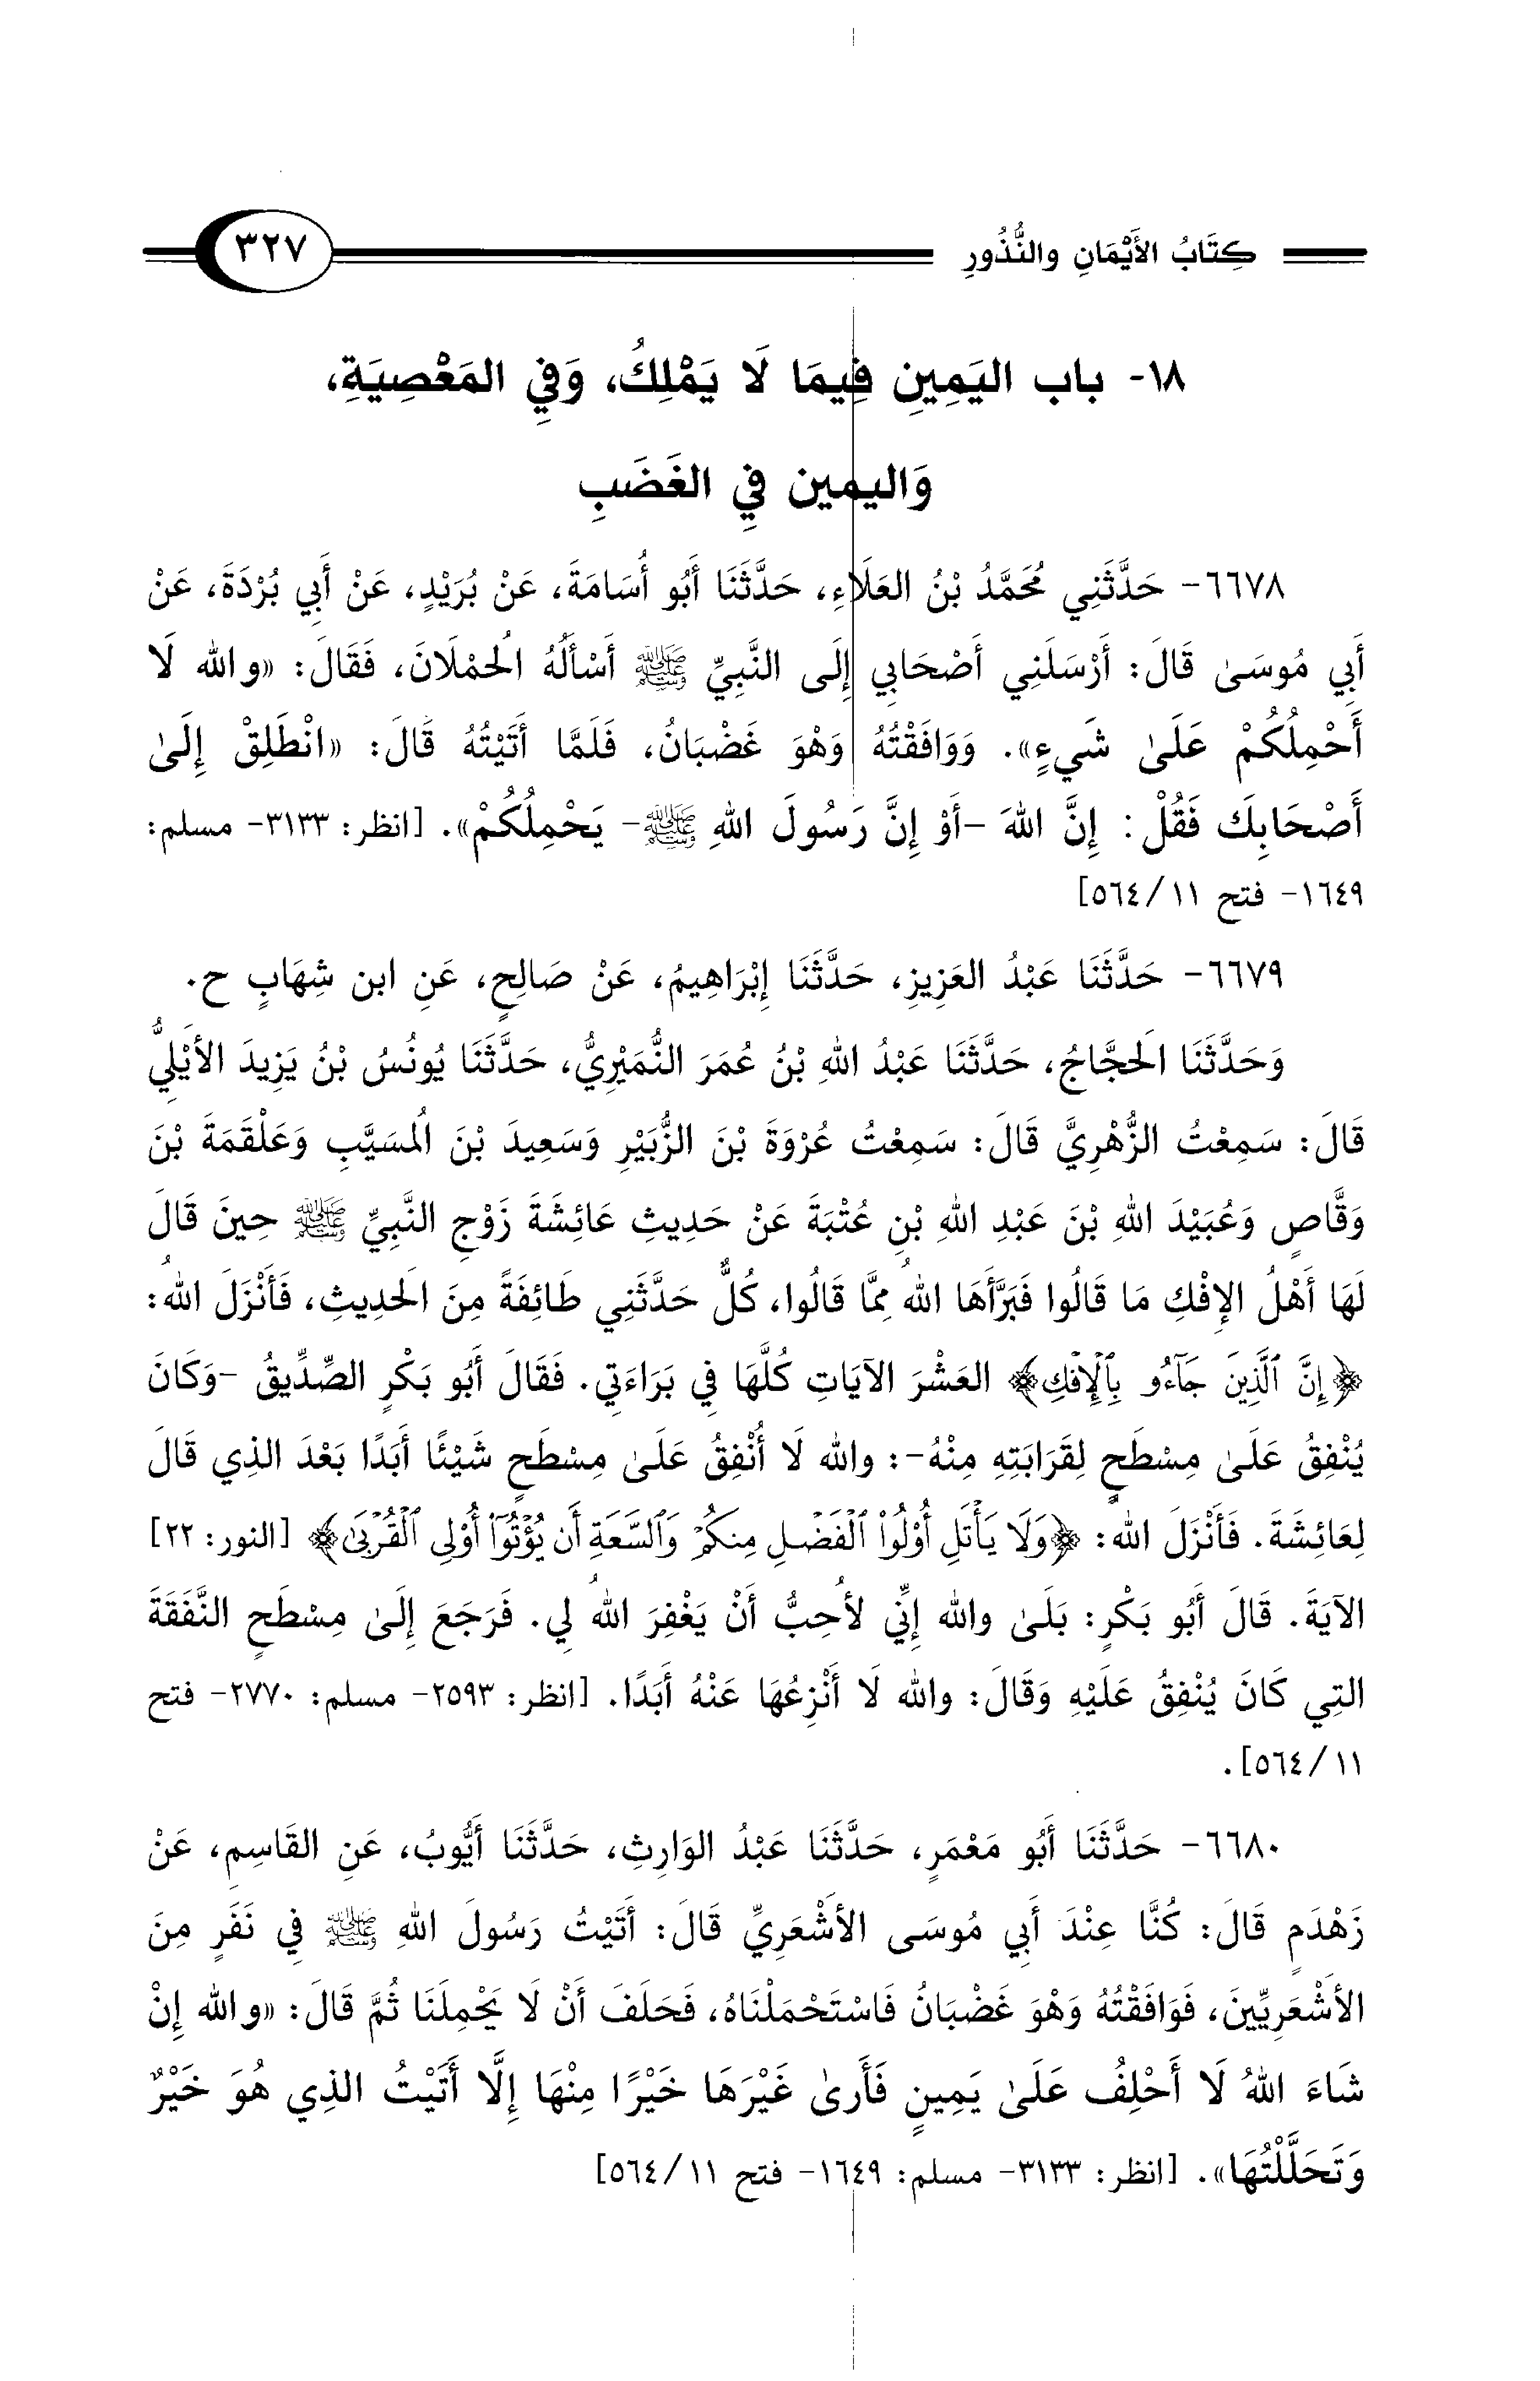 كِتَابُ الأَيْمَانِ والنُّذُورِ
٣٢٧
١٨- باب اليَمِينِ فِيمَا لَا يَمْلِكُ، وَفِي المَعْصِيَةِ،
وَاليمين فِي الغَضَبِ
٦٦٧٨- حَدَّثَنِي مُحَمَّدُ بْنُ العَلَاءِ، حَدَّثَنَا أَبُو أُسَامَةَ، عَنْ بُرَيْدٍ، عَنْ أَبِي بُرْدَةَ، عَنْ
أَبِي مُوسَىٰ قَالَ: أَرْسَلَنِي أَصْحَابِي إِلَى النَّبِيِّ ﷺ أَسْأَلُهُ الُحمْلَانَ، فَقَالَ: «والله لَا
أَحْمِلُكُمْ عَلَىٰ شَيءٍ». وَوَافَقْتُهُ وَهْوَ غَضْبَانُ، فَلَمَّا أَتَيْتُهُ قَالَ: «انْطَلِقْ إِلَىٰ
أَصْحَابِكَ فَقُلْ: إِنَّ اللهَ -أَوْ إِنَّ رَسُولَ اللهِ ﷺ- يَحْمِلُكُمْ». [انظر: ٣١٣٣- مسلم:
١٦٤٩- فتح ١١/ ٥٦٤]
٦٦٧٩- حَدَّثَنَا عَبْدُ العَزِيزِ، حَدَّثَنَا إِبْرَاهِيمُ، عَنْ صَالِحٍ، عَنِ ابن شِهَابٍ ح.
وَحَدَّثَنَا الَحجَّاجُ، حَدَّثَنَا عَبْدُ اللهِ بْنُ عُمَرَ النُّمَيْرِيُّ، حَدَّثَنَا يُونُسُ بْنُ يَزِيدَ الأَيْلِيُّ
قَالَ: سَمِعْتُ الزُّهْرِيَّ قَالَ: سَمِعْتُ عُرْوَةَ بْنَ الزُّبَيْرِ وَسَعِيدَ بْنَ الُمسَيَّبِ وَعَلْقَمَةَ بْنَ
وَقَّاصٍ وَعُبَيْدَ اللهِ بْنَ عَبْدِ اللهِ بْنِ عُتْبَةَ عَنْ حَدِيثِ عَائِشَةَ زَوْجِ النَّبِيِّ ﷺ حِينَ قَالَ
لَهَا أَهْلُ الإِفْكِ مَا قَالُوا فَبَرَّأَهَا اللهُ مِمَّا قَالُوا، كُلٌّ حَدَّثَنِي طَائِفَةً مِنَ الَحدِيثِ، فَأَنْزَلَ اللهُ:
﴿إِنَّ ٱلَّذِينَ جَآءُو بِٱلْإِفْكِ﴾ العَشْرَ الآيَاتِ كُلَّهَا فِي بَرَاءَتِي. فَقَالَ أَبُو بَكْرٍ الصِّدِّيقُ -وَكَانَ
يُنْفِقُ عَلَىٰ مِسْطَحٍ لِقَرَابَتِهِ مِنْهُ-: والله لَا أُنْفِقُ عَلَىٰ مِسْطَحٍ شَيْئًا أَبَدًا بَعْدَ الذِي قَالَ
لِعَائِشَةَ. فَأَنْزَلَ الله: ﴿وَلَا يَأْتَلِ أُوْلُوا۟ ٱلْفَضْلِ مِنكُمْ وَٱلسَّعَةِ أَن يُؤْتُوٓا۟ أُوْلِى ٱلْقُرْبَىٰ﴾ [النور: ٢٢]
الآيَةَ. قَالَ أَبُو بَكْرٍ: بَلَىٰ والله إِنِّي لأُحِبُّ أَنْ يَغْفِرَ اللهُ لِي. فَرَجَعَ إِلَىٰ مِسْطَحٍ النَّفَقَةَ
التِي كَانَ يُنْفِقُ عَلَيْهِ وَقَالَ: والله لَا أَنْزِعُهَا عَنْهُ أَبَدًا. [انظر: ٢٥٩٣- مسلم: ٢٧٧٠- فتح
١١/ ٥٦٤].
٦٦٨٠- حَدَّثَنَا أَبُو مَعْمَرٍ، حَدَّثَنَا عَبْدُ الوَارِثِ، حَدَّثَنَا أَيُّوبُ، عَنِ القَاسِمِ، عَنْ
زَهْدَمٍ قَالَ: كُنَّا عِنْدَ أَبِي مُوسَى الأَشْعَرِيِّ قَالَ: أَتَيْتُ رَسُولَ اللهِ ﷺ فِي نَفَرٍ مِنَ
الأَشْعَرِيِّينَ، فَوَافَقْتُهُ وَهْوَ غَضْبَانُ فَاسْتَحْمَلْنَاهُ، فَحَلَفَ أَنْ لَا يَحْمِلَنَا ثُمَّ قَالَ: «والله إِنْ
شَاءَ اللهُ لَا أَحْلِفُ عَلَىٰ يَمِينٍ فَأَرىٰ غَيْرَهَا خَيْرًا مِنْهَا إِلَّا أَتَيْتُ الذِي هُوَ خَيْرٌ
وَتَحَلَّلْتُهَا». [انظر: ٣١٣٣- مسلم: ١٦٤٩- فتح ١١/ ٥٦٤]